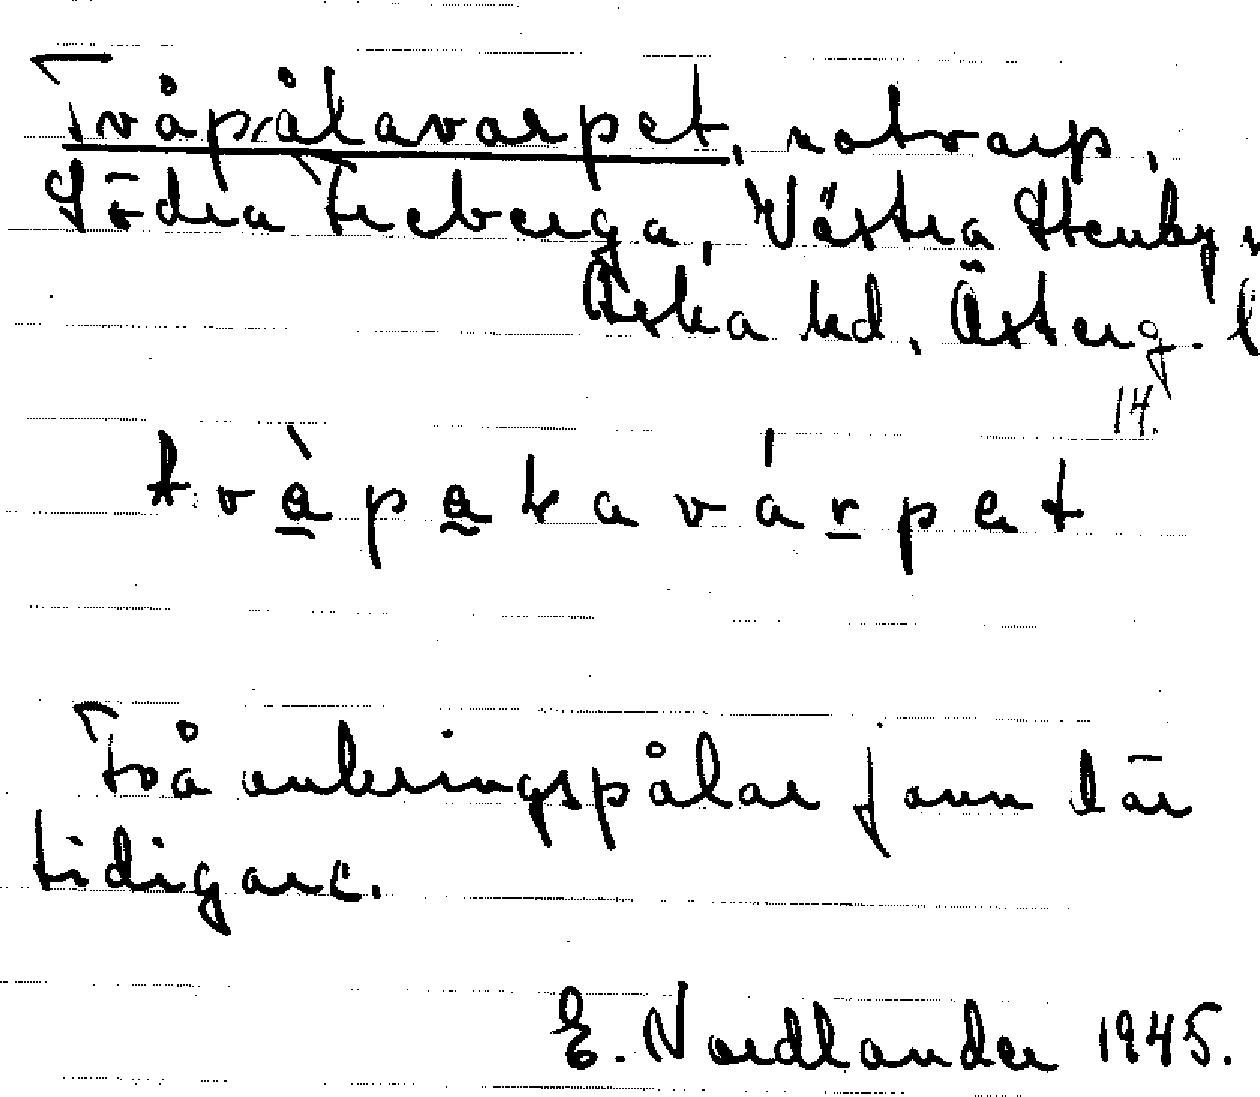 Tvåpålavarpet, notvarp,
Södra Freberga, Västra Stenby
Aska hd, Österg. l
14.
Två ankringspålar fann där
tidigare.
E. Nordlander 1945.